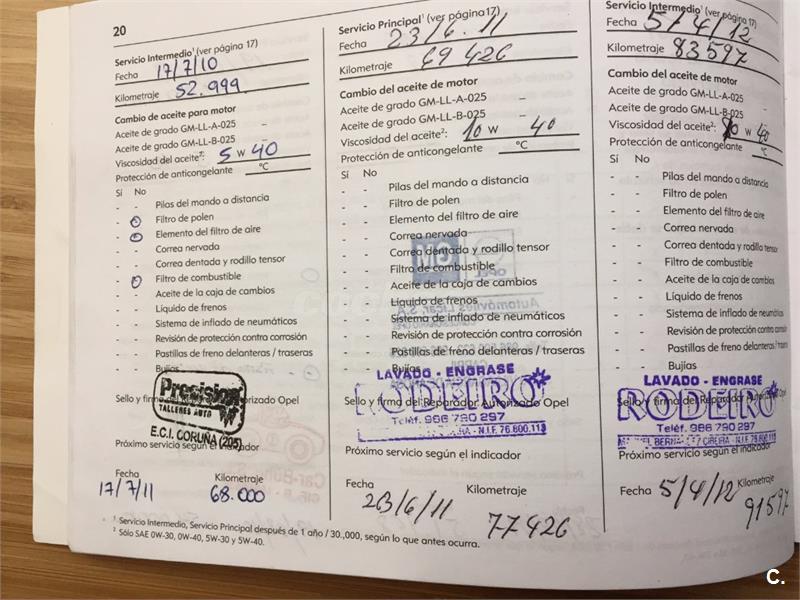 20
Servicio Intermedio¹ (ver página 17)
Fecha 17/7/10
Kilometraje 52.999
Cambio de aceite para motor
Aceite de grado GM-LL-A-025 -
Aceite de grado GM-LL-B-025 -
Viscosidad del aceite²: 5 W 40
Protección de anticongelante °C
Sí No
- - Pilas del mando a distancia
- Filtro de polen
- Elemento del filtro de aire
- - Correa nervada
- - Correa dentada y rodillo tensor
- Filtro de combustible
- - Aceite de la caja de cambios
- - Líquido de frenos
- - Sistema de inflado de neumáticos
- - Revisión de protección contra corrosión
- - Pastillas de freno delanteras / traseras
- - Bujías
Precision
TALLERES AUTO
Sello y firma del Reparador Autorizado Opel
E.C.I. CORUÑA (205)
Próximo servicio según el indicador
Fecha Kilometraje
17/7/11 68.000
Servicio Principal¹ (ver página 17)
Fecha 23/6.11
Kilometraje 69 426
Cambio del aceite de motor
Aceite de grado GM-LL-A-025 -
Aceite de grado GM-LL-B-025 -
Viscosidad del aceite²: 10 W 40
Protección de anticongelante °C
Sí No
- - Pilas del mando a distancia
- - Filtro de polen
- - Elemento del filtro de aire
- - Correa nervada
- - Correa dentada y rodillo tensor
- - Filtro de combustible
- - Aceite de la caja de cambios
- - Líquido de frenos
- - Sistema de inflado de neumáticos
- - Revisión de protección contra corrosión
- - Pastillas de freno delanteras / traseras
- - Bujías
LAVADO - ENGRASE
Sello y firma del Reparador Autorizado Opel
RODEIRO
Teléf. 986 790 297
N.I.F. 76.800.113
Próximo servicio según el indicador
Fecha Kilometraje
23/6/11 77426
Servicio Intermedio¹ (ver página 17)
Fecha 5/4/12
Kilometraje 83597
Cambio del aceite de motor
Aceite de grado GM-LL-A-025 -
Aceite de grado GM-LL-B-025 -
Viscosidad del aceite²: 10 W 40
Protección de anticongelante °C
Sí No
- - Pilas del mando a distancia
- - Filtro de polen
- - Elemento del filtro de aire
- - Correa nervada
- - Correa dentada y rodillo tensor
- - Filtro de combustible
- - Aceite de la caja de cambios
- - Líquido de frenos
- - Sistema de inflado de neumáticos
- - Revisión de protección contra corrosión
- - Pastillas de freno delanteras / traseras
- - Bujías
LAVADO - ENGRASE
Sello y firma del Reparador Autorizado Opel
RODEIRO
Teléf. 986 790 297
N.I.F. 76.800.113
Próximo servicio según el indicador
Fecha 5/4/12 Kilometraje
91597
¹ Servicio Intermedio, Servicio Principal después de 1 año / 30.,000, según lo que antes ocurra.
² Sólo SAE 0W-30, 0W-40, 5W-30 y 5W-40.
C.